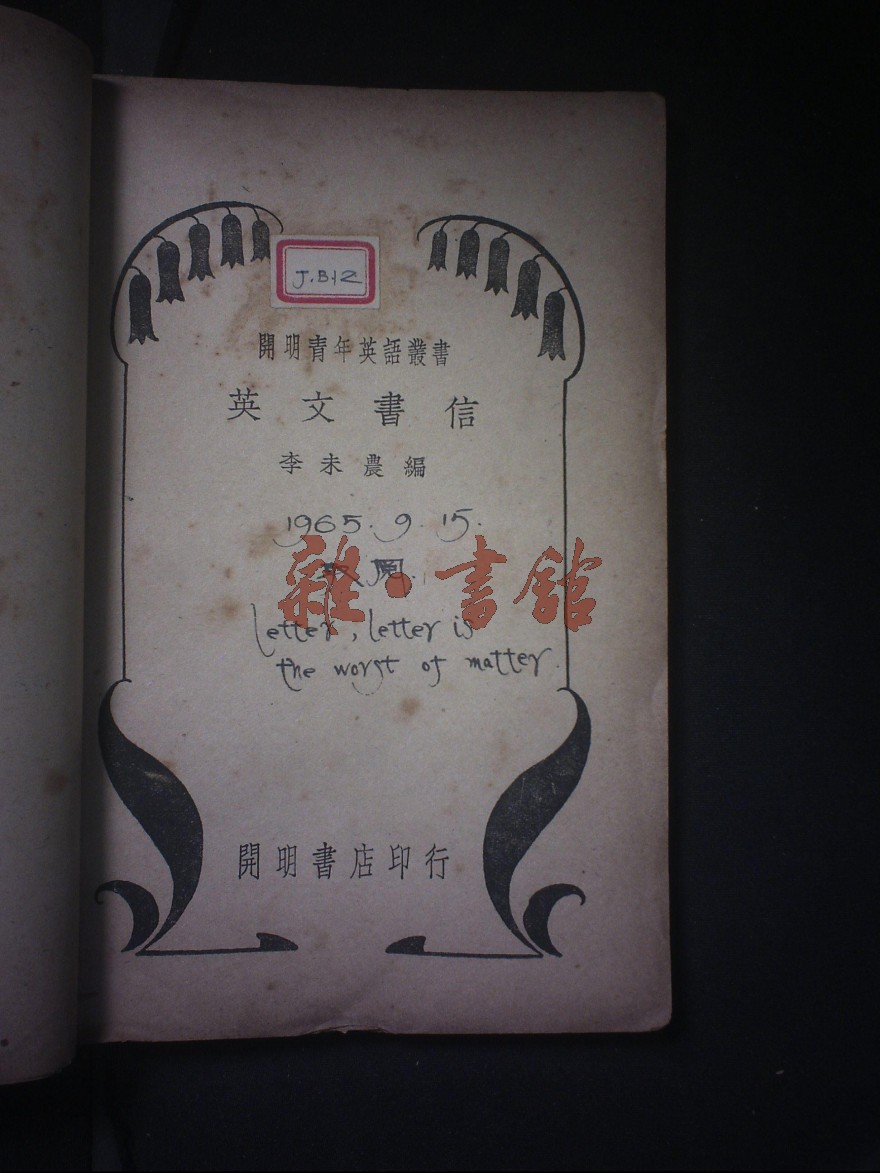 J.B.12
開明青年英語叢書
英文書信
李未農編
1965.9.15.
雜·書館
Letter, letter is
the worst of matter.
開明書店印行